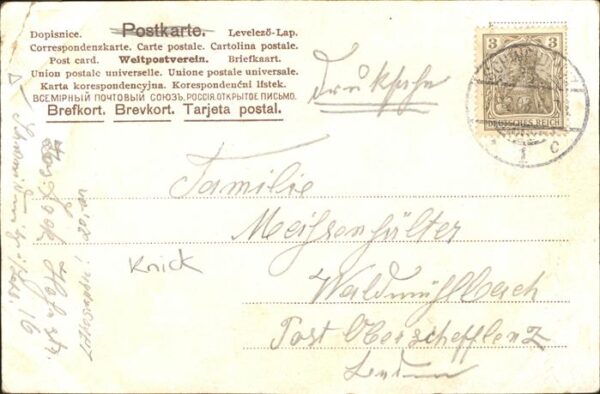 Dopisnice. Postkarte. Levelező-Lap.
Correspondenzkarte. Carte postale. Cartolina postale.
Post card. Weltpostverein. Briefkaart.
Union postale universelle. Unione postale universale.
Karta korespondencyjna. Korespondenčni listek.
ВСЕМІРНЫЙ ПОЧТОВЫЙ СОЮЗЪ. РОССІЯ. ОТКРЫТОЕ ПИСЬМО.
Brefkort. Brevkort. Tarjeta postal.
Drucksache
3 3
DEUTSCHES REICH
1 c
Familie
Meissenhälter
Waldmühlbach
Post Oberschefflenz
Baden
Knick
16